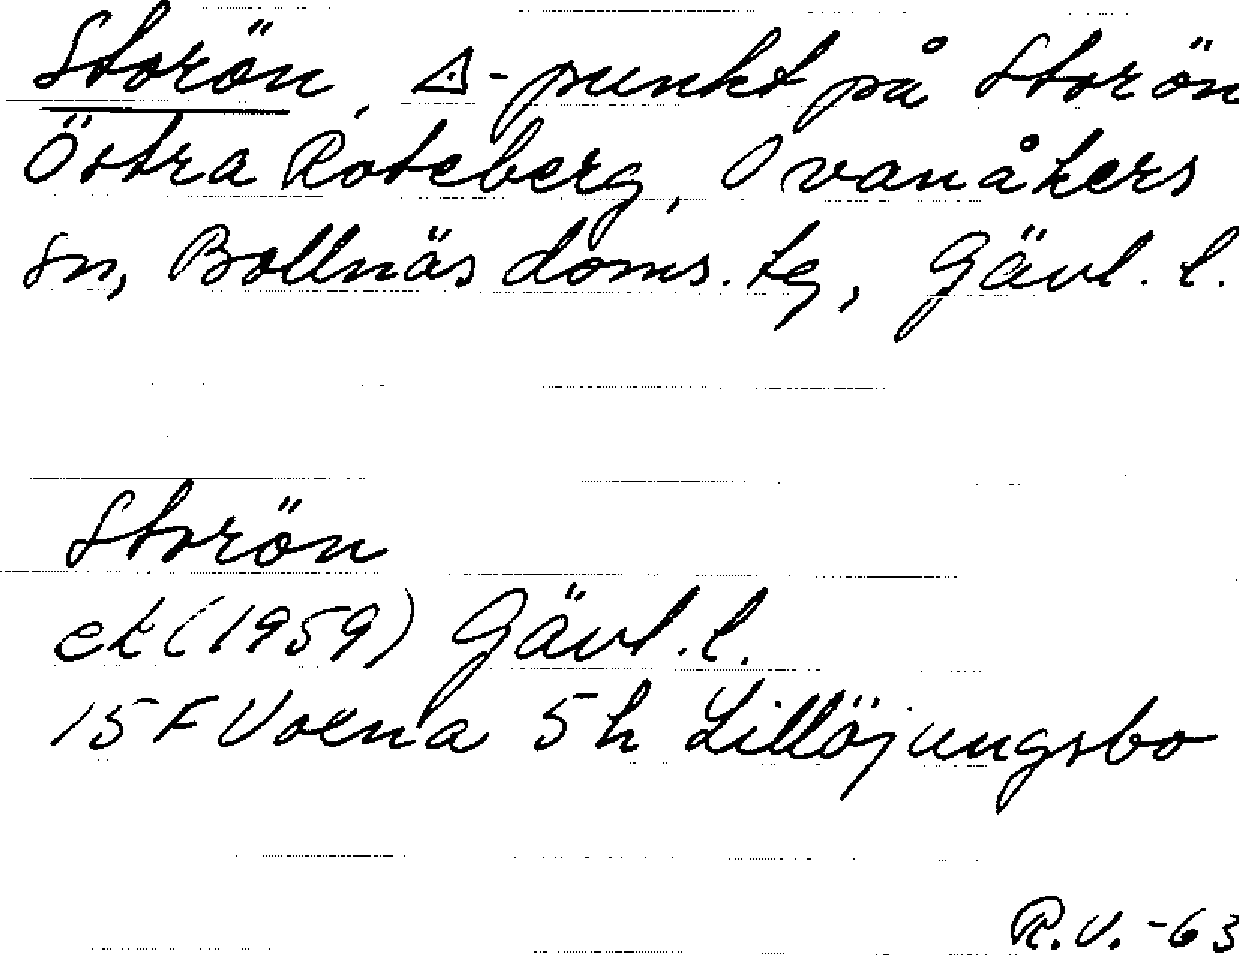 Storön, △-punkt på Storön
Östra Roteberg, Ovanåkers
sn, Bollnäs doms. tg, Gävl. l.
Storön
ek (1959) Gävl. l.
15 F Voxna 5h Lillöjungsbo
R.V. -63